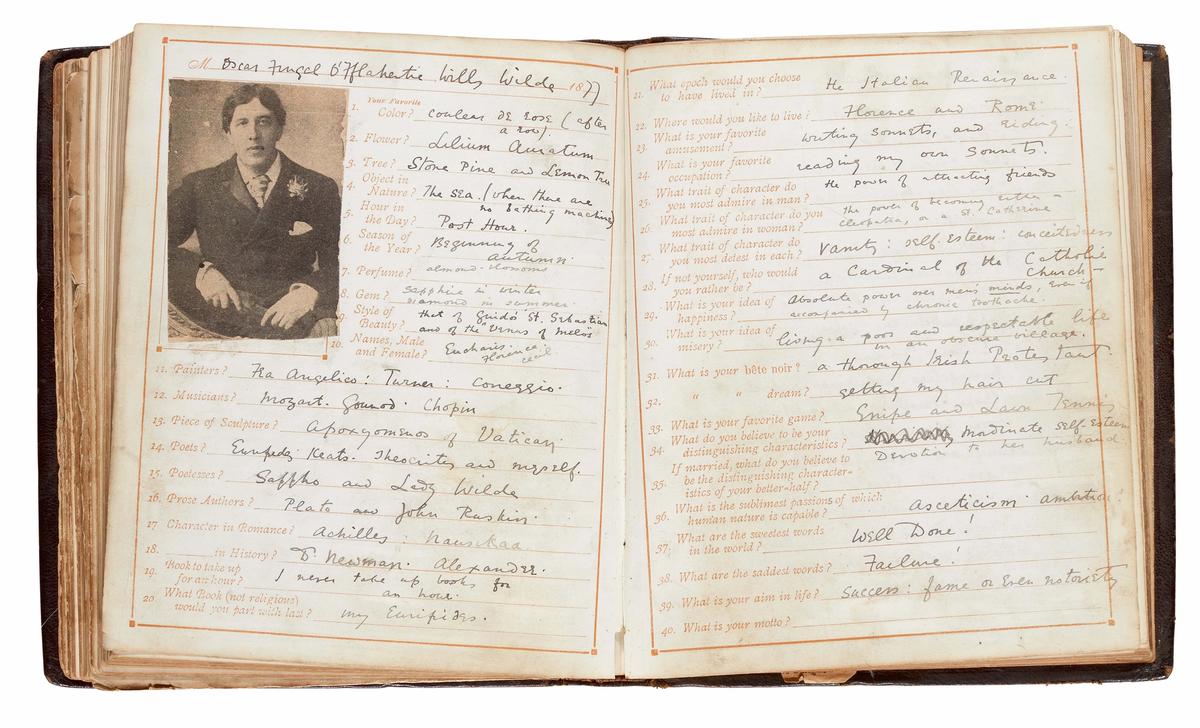 M Oscar Fingal O'Fflahertie Wills Wilde 1877
Your Favorite
1. Color? couleur de rose (after
a row).
2. Flower? Lilium Auratum
3. Tree? Stone Pine and Lemon Tree
4. Object in
Nature? The sea. (when there are
no bathing machines)
5. Hour in
the Day? Post Hour.
6. Season of
the Year? Beginning of
autumn.
7. Perfume? almond-blossoms
8. Gem? sapphire in winter
diamond in summer.
9. Style of
Beauty? that of Guido's St. Sebastian
and of the Venus of Melos
10. Names, Male
and Female? Eucharis.
Florence. Cecil
11. Painters? Fra Angelico: Turner: Correggio.
12. Musicians? Mozart. Gounod. Chopin
13. Piece of Sculpture? Apoxyomenos of Vatican
14. Poets? Euripides Keats. Theocritus and myself.
15. Poetesses? Sappho and Lady Wilde
16. Prose Authors? Plato and John Ruskin.
17 Character in Romance? Achilles. Nausikaa
18. in History? Dr Newman. Alexander.
19. Book to take up
for an hour? I never take up books for
an hour.
20 What Book (not religious)
would you part with last? my Euripides.
21. What epoch would you choose
to have lived in? the Italian Renaissance.
22. Where would you like to live? Florence and Rome.
23. What is your favorite
amusement? writing sonnets, and riding.
24. What is your favorite
occupation? reading my own sonnets.
25. What trait of character do
you most admire in man? the power of attracting friends
26. What trait of character do you
most admire in woman? the power of becoming either a
Cleopatra, or a St. Catherine
27. What trait of character do
you most detest in each? Vanity: self-esteem: conceitedness
28. If not yourself, who would
you rather be? a Cardinal of the Catholic
Church
29. What is your idea of
happiness? Absolute power over men's minds, even if
accompanied by chronic toothache.
30. What is your idea of
misery? living a poor and respectable life
in an obscure village.
31. What is your bête noir? a thorough Irish Protestant.
32. " " dream? getting my hair cut
33. What is your favorite game? Snipe and Lawn Tennis
34. What do you believe to be your
distinguishing characteristics? Inordinate self-esteem
35. If married, what do you believe to
be the distinguishing character-
istics of your better-half? Devotion to her husband.
36. What is the sublimest passions of which
human nature is capable? asceticism. ambition!
37. What are the sweetest words
in the world? Well Done!
38. What are the saddest words? Failure!
39. What is your aim in life? Success: fame or even notoriety
40. What is your motto?